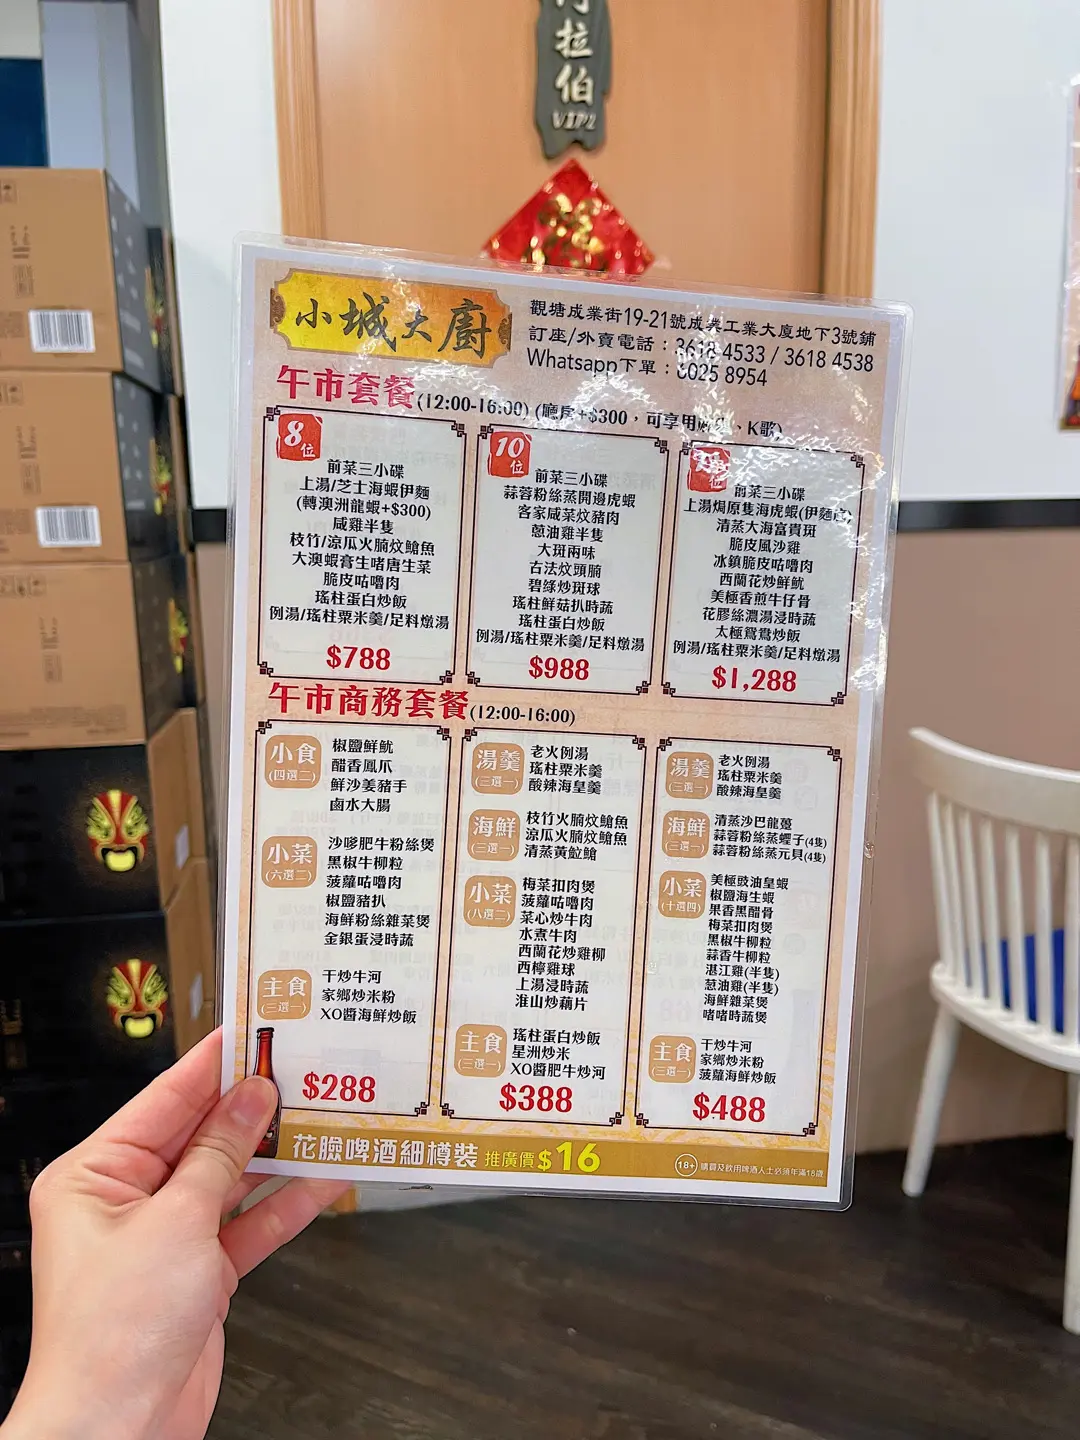 拉伯
VIP2
小城大廚
觀塘成業街19-21號成業工業大廈地下3號鋪
訂座/外賣電話：3618 4533 / 3618 4538
Whatsapp下單：6025 8954
午市套餐(12:00-16:00) (廳房+$300，可享用、K歌)
8位
前菜三小碟
上湯/芝士海蝦伊麵
(轉澳洲龍蝦+$300)
咸雞半隻
枝竹/涼瓜火腩炆鯰魚
大澳蝦膏生啫唐生菜
脆皮咕嚕肉
瑤柱蛋白炒飯
例湯/瑤柱粟米羹/足料燉湯
$788
10位
前菜三小碟
蒜蓉粉絲蒸開邊虎蝦
客家咸菜炆豬肉
蔥油雞半隻
大班兩味
古法炆頭腩
碧綠炒斑球
瑤柱鮮菇扒時蔬
瑤柱蛋白炒飯
例湯/瑤柱粟米羹/足料燉湯
$988
位
前菜三小碟
上湯焗原隻海虎蝦(伊麵底)
清蒸大海富貴斑
脆皮風沙雞
冰鎮脆皮咕嚕肉
西蘭花炒鮮魷
美極香煎牛仔骨
花膠絲濃湯浸時蔬
太極鴛鴦炒飯
例湯/瑤柱粟米羹/足料燉湯
$1,288
午市商務套餐(12:00-16:00)
小食
(四選二)
椒鹽鮮魷
醋香鳳爪
鮮沙姜豬手
鹵水大腸
小菜
(六選二)
沙嗲肥牛粉絲煲
黑椒牛柳粒
菠蘿咕嚕肉
椒鹽豬扒
海鮮粉絲雜菜煲
金銀蛋浸時蔬
主食
(三選一)
干炒牛河
家鄉炒米粉
XO醬海鮮炒飯
$288
湯羹
(三選一)
老火例湯
瑤柱粟米羹
酸辣海皇羹
海鮮
(三選一)
枝竹火腩炆鯰魚
涼瓜火腩炆鯰魚
清蒸黃䱽鯧
小菜
(八選二)
梅菜扣肉煲
菠蘿咕嚕肉
菜心炒牛肉
水煮牛肉
西蘭花炒雞柳
西檸雞球
上湯浸時蔬
淮山炒藕片
主食
(三選一)
瑤柱蛋白炒飯
星洲炒米
XO醬肥牛炒河
$388
湯羹
(三選一)
老火例湯
瑤柱粟米羹
酸辣海皇羹
海鮮
(三選一)
清蒸沙巴龍躉
蒜蓉粉絲蒸蟶子(4隻)
蒜蓉粉絲蒸元貝(4隻)
小菜
(十選四)
美極豉油皇蝦
椒鹽海生蝦
果香黑醋骨
梅菜扣肉煲
黑椒牛柳粒
蒜香牛柳粒
湛江雞(半隻)
蔥油雞(半隻)
海鮮雜菜煲
啫啫時蔬煲
主食
(三選一)
干炒牛河
家鄉炒米粉
菠蘿海鮮炒飯
$488
花臉啤酒細樽裝 推廣價$16
18+ 購買及飲用啤酒人士必須年滿18歲